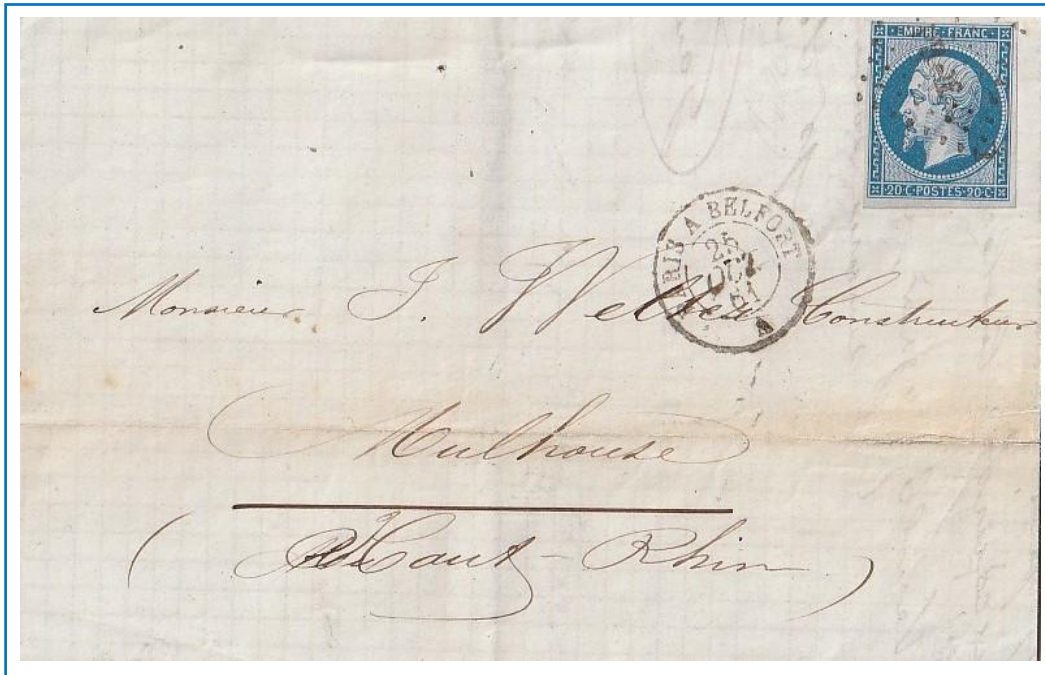 EMPIRE·FRANC·
20·C·POSTES·20·C·
PARIS A BELFORT
25
OCT
A
Monsieur J. Constructeur
Mulhouse
(Haut-Rhin)